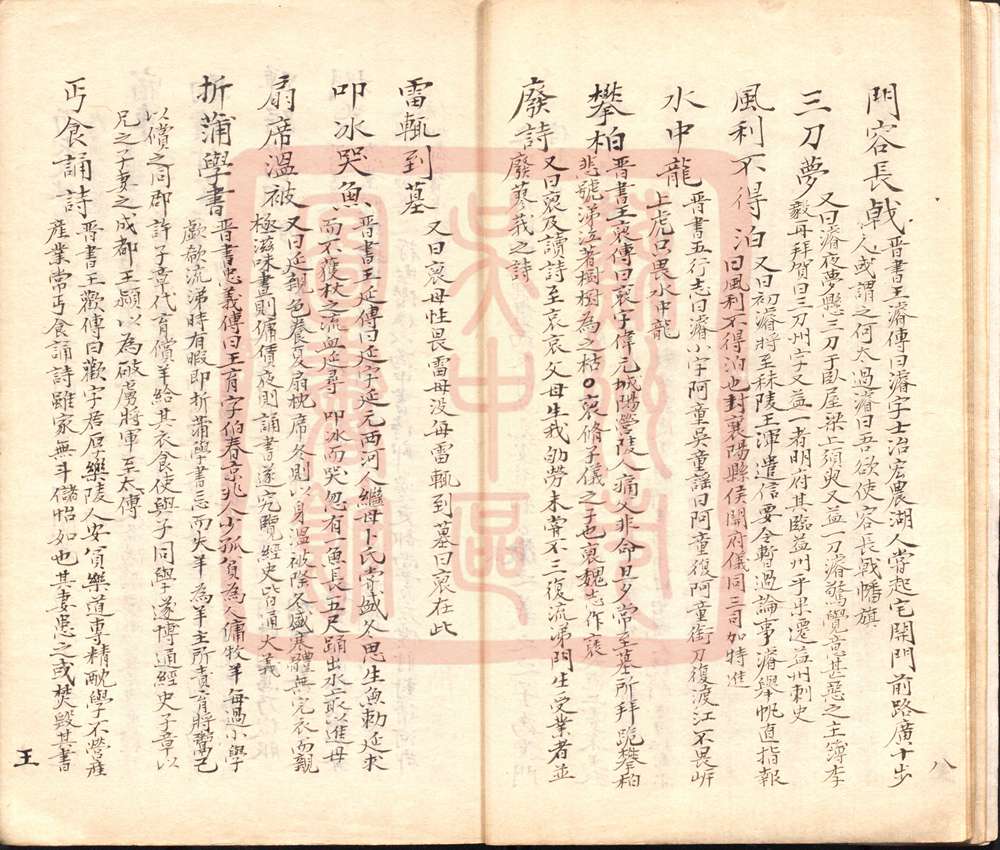 門容長戟晉書王濬傳曰濬字士治宏農湖人嘗起宅開門前路廣十步
人或謂之何太過濬曰吾欲使容長戟幡旗
三刀夢又曰濬夜夢懸三刀于臥屋梁上須臾又益一刀濬驚覺意甚惡之主簿李
毅再拜賀曰三刀州字又益一者明府其臨益州乎果遷益州刺史
風利不得泊又曰初濬將至秣陵王渾遣信要令暫過論事濬舉帆直指報
曰風利不得泊也封襄陽縣侯開府儀同三司加特進
水中龍晉書五行志曰濬小字阿童吳童謠曰阿童復阿童銜刀復渡江不畏岍
上虎只畏水中龍
攀柏晉書王裒傳曰裒字偉元城陽營陵人痛父非命旦夕常至墓所拜跪攀柏
悲號涕泣著樹樹為之枯○裒脩子儀之子也裒魏志作襃
廢詩又曰裒及讀詩至哀哀父母生我劬勞未嘗不三復流涕門生受業者並
廢蓼莪之詩
雷輒到墓又曰裒母性畏雷母没每雷輒到墓曰裒在此
叩冰哭魚晉書王延傳曰延字延元西河人繼母卜氏嘗盛冬思生魚勅延求
而不獲杖之流血延尋 叩冰而哭忽有一魚長五尺踊出水上取以進母
扇席溫被又曰延親色養夏扇枕席冬則以身溫被隆冬盛寒體無完衣而親
極滋味晝則傭賃夜則誦書遂究覽經史皆通大義
折蒲學書晉書忠義傳曰王育字伯春京兆人少孤貧為人傭牧羊每過小學
歔欷流涕時有暇即折蒲學書忘而失羊為羊主所責育將鬻己
以償之同郡許子章代育償羊給其衣食使與子同學遂博通經史子章以
兄之子妻之成都王穎以為破虜將軍至太傅
丐食誦詩晉書王歡傳曰歡字君厚樂陵人安貧樂道專精酖學不營產
產業常丐食誦詩雖家無斗儲怡如也其妻患之或焚毀其書
八
王